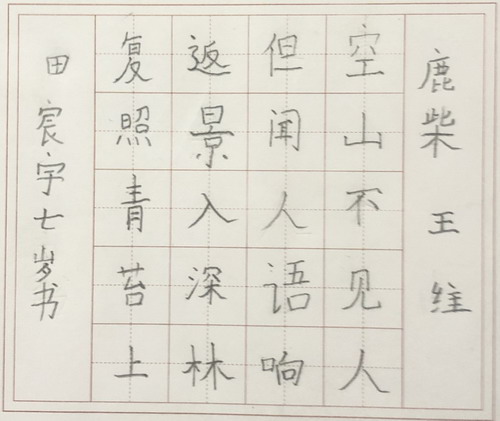 鹿柴 王维
空山不见人
但闻人语响
返景入深林
复照青苔上
田宸宇七岁书